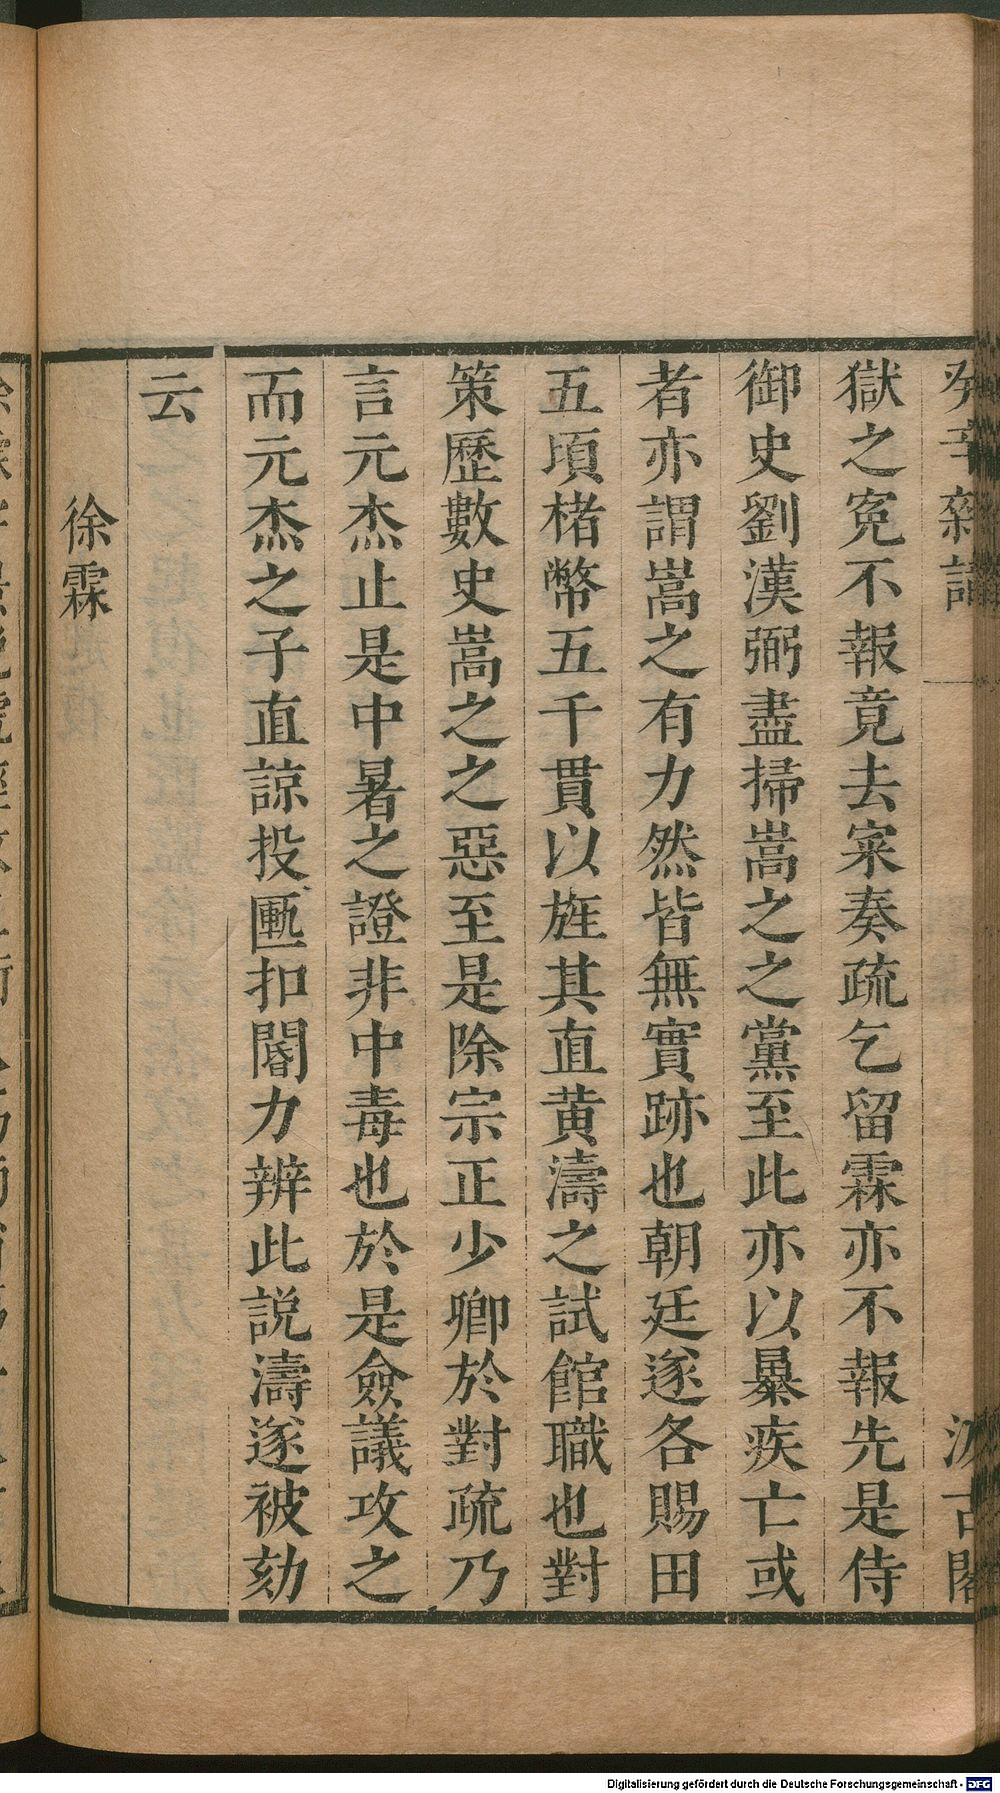 癸辛雜識
汲古閣
獄之寃不報竟去寀奏疏乞留霖亦不報先是侍
御史劉漢弼盡掃嵩之之黨至此亦以暴疾亡或
者亦謂嵩之有力然皆無實跡也朝廷遂各賜田
五頃楮幣五千貫以旌其直黄濤之試館職也對
策歷數史嵩之之惡至是除宗正少卿於對疏乃
言元杰止是中暑之證非中毒也於是僉議攻之
而元杰之子直諒投匭扣閽力辨此説濤遂被劾
云
徐霖
Digitalisierung gefördert durch die Deutsche Forschungsgemeinschaft - DFG